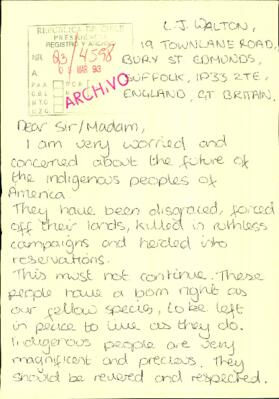 REPUBLICA DE CHILE
PRESIDENCIA
REGISTRO Y ARCHIVO
NR. 93/4598
A 05 MAR 93
ARCHIVO
L.J. WALTON,
19 TOWNLANE ROAD,
BURY ST EDMUNDS,
SUFFOLK, IP33 2TE,
ENGLAND, GT BRITAIN.
Dear Sir/Madam,
I am very worried and
concerned about the future of
the indigenous peoples of
America.
They have been disgraced, forced
off their lands, killed in ruthless
campaigns and herded into
reservations.
This must not continue. These
people have a born right as
our fellow species, to be left
in peace to live as they do.
Indigenous people are very
magnificent and precious. They
should be revered and respected.